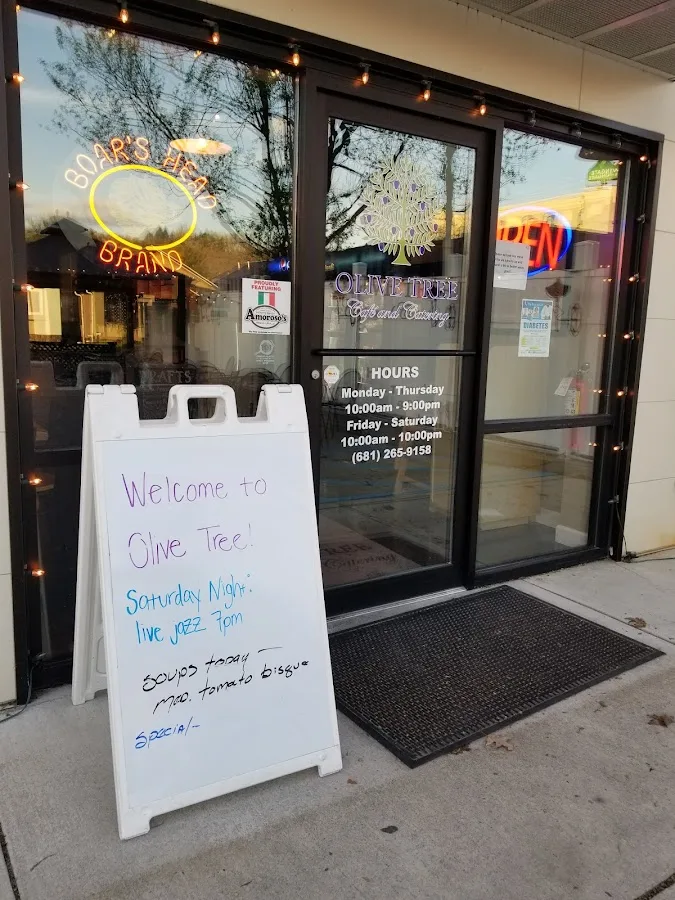 BOAR'S HEAD
BRAND
PROUDLY
FEATURING
Amoroso's
OLIVE TREE
Café and Catering
OPEN
DIABETES
HOURS
Monday - Thursday
10:00am - 9:00pm
Friday - Saturday
10:00am - 10:00pm
(681) 265-9158
Welcome to
Olive Tree!
Saturday Night:
live jazz 7pm
Soups today —
mad. tomato bisque
Special -